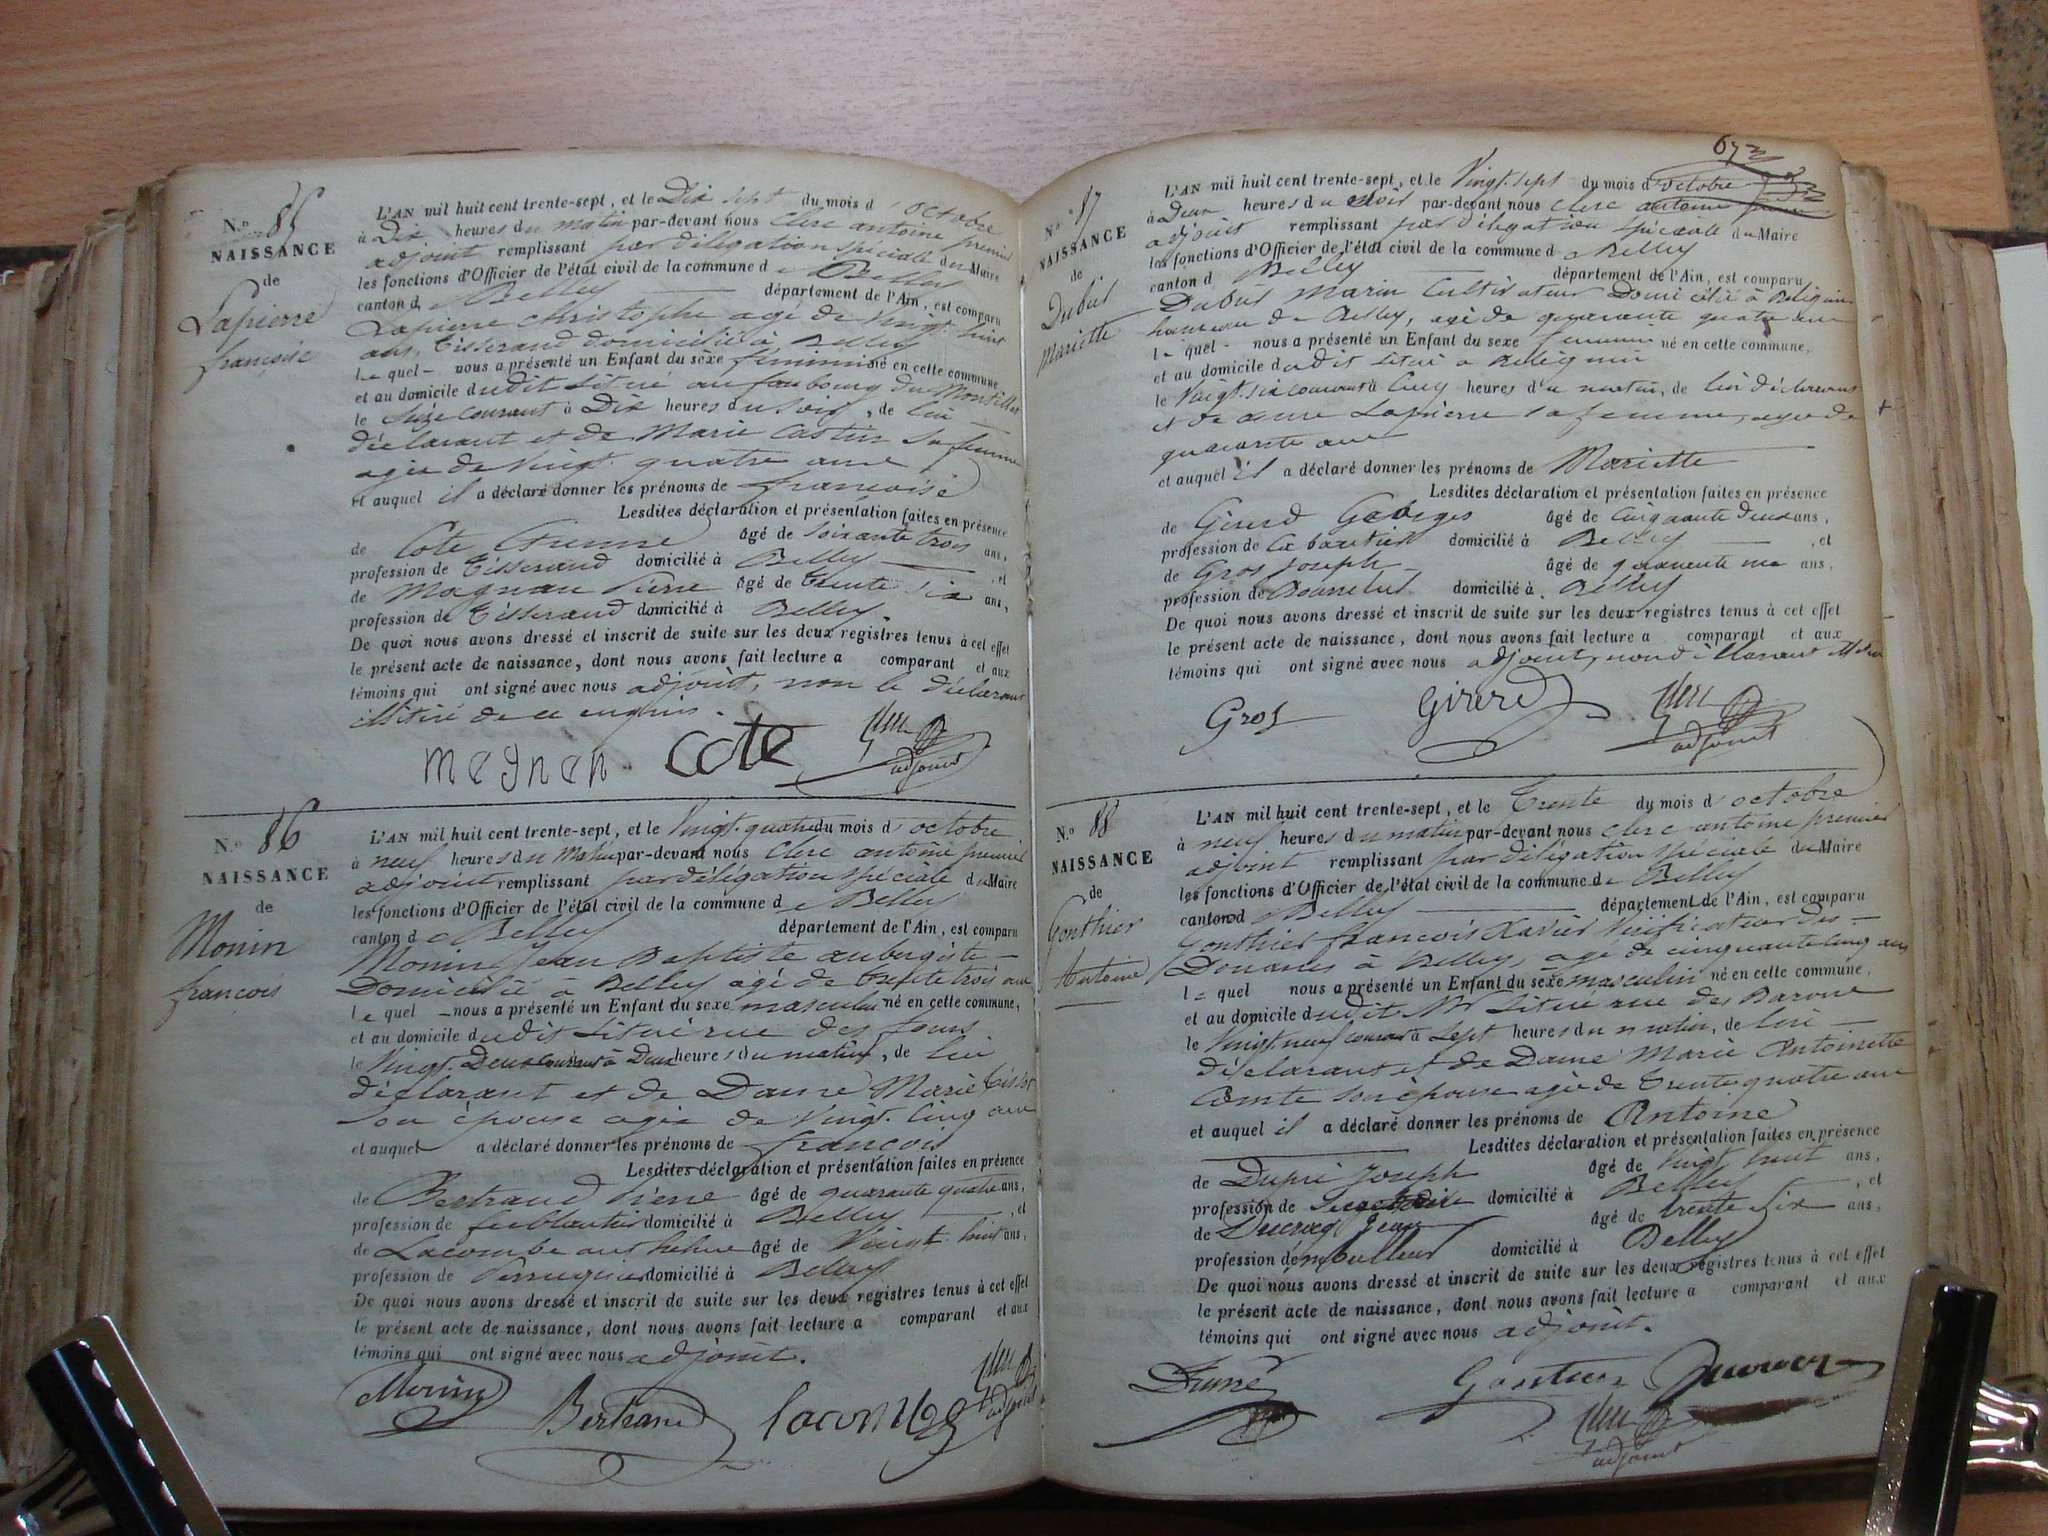 N.o 85
NAISSANCE
de
Lapierre
françoise
L'AN mil huit cent trente-sept, et le Dix sept du mois d'octobre
à Dix heures du matin par-devant nous Clerc antoine premier
adjoint remplissant par délégation spéciale du Maire
les fonctions d'Officier de l'état civil de la commune de Belley
canton de Belley département de l'Ain, est comparu
Lapierre Christophe agé de Vingt huit
ans, Tisserand domicilié à Belley
Le quel nous a présenté un Enfant du sèxe féminin né en cette commune
et au domicile dudit situé au faubourg du
le Seize courant à Dix heures du soir, de lui
déclarant et de Marie Castin sa femme
agée de Vingt quatre ans
et auquel il a déclaré donner les prénoms de françoise
Lesdites déclaration et présentation faites en présence
de Cote Etienne âgé de soixante trois ans,
profession de Tisserand domicilié à Belley et
de Magnan Pierre âgé de Trente six ans,
profession de Tisserand domicilié à Belley.
De quoi nous avons dressé et inscrit de suite sur les deux registres tenus à cet effet
le présent acte de naissance, dont nous avons fait lecture a comparant et aux
témoins qui ont signé avec nous adjoint, non le déclarant
illitiré de ce enquis.
megnen cote Clerc
adjoint
N.o 86
NAISSANCE
de
Monin
françois
L'AN mil huit cent trente-sept, et le Vingt quatre du mois d'octobre
à neuf heures du Matin par-devant nous Clerc antoine premier
adjoint remplissant par délégation spéciale du Maire
les fonctions d'Officier de l'état civil de la commune de Belley
canton de Belley département de l'Ain, est comparu
Monin Jean Baptiste aubergiste
Domicilié à Belley agé de trente trois ans
le quel nous a présenté un Enfant du sexe masculin né en cette commune,
et au domicile dudit situé rue des fours
le Vingt Deux courant à Deux heures du matin, de lui
déclarant et de Dame Marie Tissot
son épouse agée de Vingt Cinq ans
et auquel a déclaré donner les prénoms de françois
Lesdites déclaration et présentation faites en présence
de Bertrand Pierre âgé de quarante quatre ans,
profession de ferblantier domicilié à Belley et
de Lacombe anthelme âgé de Vingt huit ans,
profession de Perruquier domicilié à Belley
De quoi nous avons dressé et inscrit de suite sur les deux registres tenus à cet effet
le présent acte de naissance, dont nous avons fait lecture a comparant et aux
témoins qui ont signé avec nous adjoint.
Monin Bertrand lacombe Clerc
adjoint
N.o 87
NAISSANCE
de
Dubut
Mariette
L'AN mil huit cent trente-sept, et le Vingt sept du mois d'octobre
à Deux heures du soir par-devant nous Clerc antoine premier
adjoint remplissant par délégation spéciale du Maire
les fonctions d'Officier de l'état civil de la commune de Belley
canton de Belley département de l'Ain, est comparu
Dubut Marin Cultivateur Domicilié à
hameau de Belley, agé de quarante quatre ans
le quel nous a présenté un Enfant du sexe feminin né en cette commune,
et au domicile dudit situé a
le Vingt six courant à Cinq heures du matin, de lui déclarant
et de anne Lapierre sa femme, agée de
quarante ans
et auquel il a déclaré donner les prénoms de Mariette
Lesdites déclaration et présentation faites en présence
de Girerd Georges âgé de Cinquante deux ans,
profession de Cabaretier domicilié à Belley, et
de Gros Joseph âgé de quarente ans,
profession de domicilié à Belley
De quoi nous avons dressé et inscrit de suite sur les deux registres tenus à cet effet
le présent acte de naissance, dont nous avons fait lecture a comparant et aux
témoins qui ont signé avec nous adjoint, non
Gros Girerd Clerc
adjoint
N.o 88
NAISSANCE
de
Gonthier
Antoine
L'AN mil huit cent trente-sept, et le Trente du mois d'octobre
à neuf heures du matin par-devant nous Clerc antoine premier
adjoint remplissant par délégation spéciale du Maire
les fonctions d'Officier de l'état civil de la commune de Belley
canton d Belley département de l'Ain, est comparu
Gonthier françois Xavier Vérificateur des
Douanes à Belley, agé de cinquante cinq ans
le quel nous a présenté un Enfant du sexe masculin né en cette commune,
et au domicile dudit Mr situé rue des Barons
le Vingt neuf courant à Sept heures du matin, de lui
déclarant et de Dame Marie Antoinette
Comte son épouse agée de Trente quatre ans
et auquel il a déclaré donner les prénoms de Antoine
Lesdites déclaration et présentation faites en présence
de Dupré Joseph âgé de Vingt huit ans,
profession de Secretaire domicilié à Belley, et
de Jean âgé de trente six ans,
profession d domicilié à Belley
De quoi nous avons dressé et inscrit de suite sur les deux registres tenus à cet effet
le présent acte de naissance, dont nous avons fait lecture a comparant et aux
témoins qui ont signé avec nous adjoint.
Clerc
adjoint